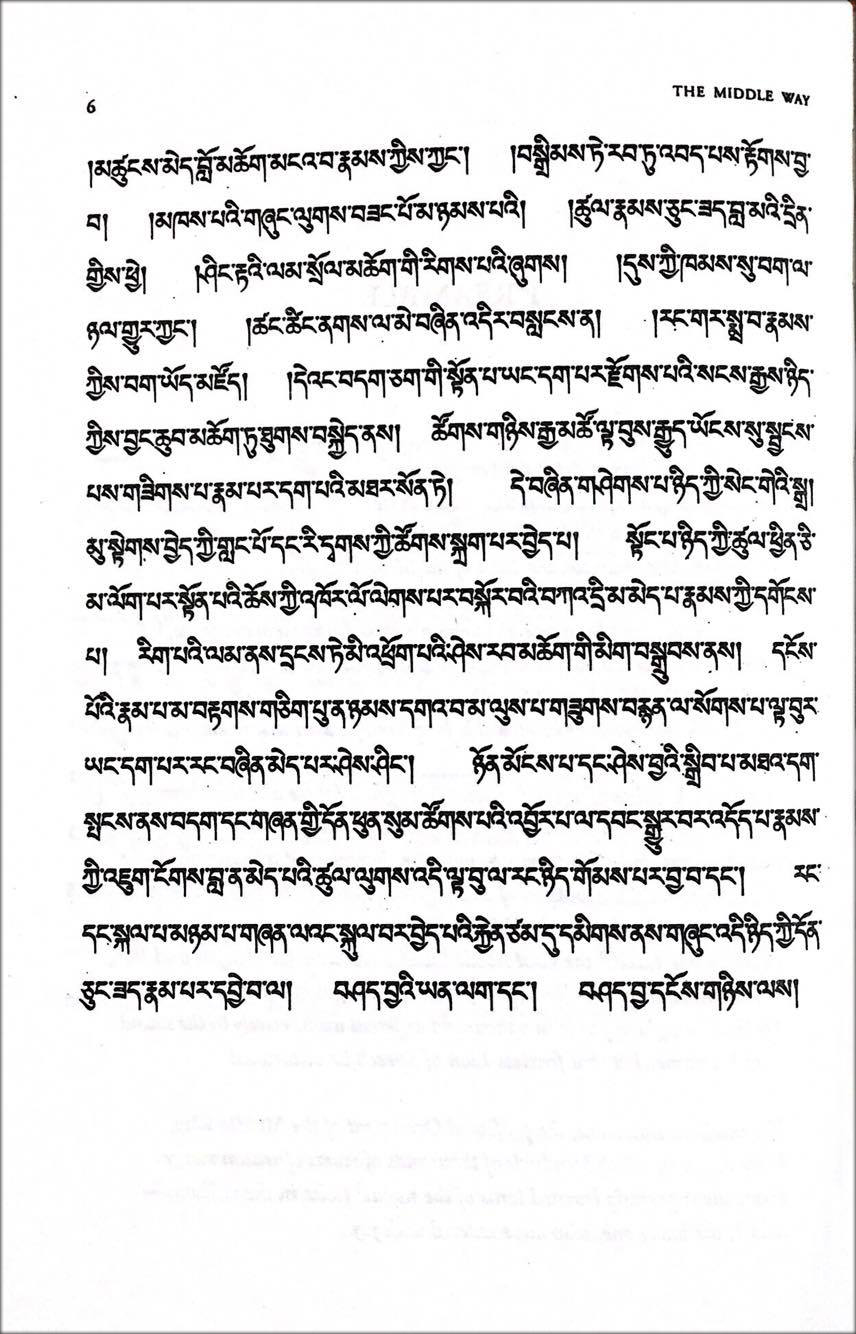 6
THE MIDDLE WAY
།མཚུངས་མེད་བློ་མཆོག་མངའ་བ་རྣམས་ཀྱིས་ཀྱང་། །བསྒྲིམས་ཏེ་རབ་ཏུ་འབད་པས་རྟོགས་བྱ་
བ། །མཁས་པའི་གཞུང་ལུགས་བཟང་པོ་མ་ཉམས་པའི། །ཚུལ་རྣམས་ཅུང་ཟད་བླ་མའི་དྲིན་
གྱིས་ཕྱེ། །ཤིང་རྟའི་ལམ་སྲོལ་མཆོག་གི་རིགས་པའི་ཞུགས། །དུས་ཀྱི་ཁམས་སུ་བག་ལ་
ཉལ་གྱུར་ཀྱང་། །ཚང་ཚིང་ནགས་ལ་མེ་བཞིན་འདིར་བསླངས་ན། །རང་གར་སྨྲ་བ་རྣམས་
ཀྱིས་བག་ཡོད་མཛོད། །དེའང་བདག་ཅག་གི་སྟོན་པ་ཡང་དག་པར་རྫོགས་པའི་སངས་རྒྱས་ཉིད་
ཀྱིས་བྱང་ཆུབ་མཆོག་ཏུ་ཐུགས་བསྐྱེད་ནས། ཚོགས་གཉིས་རྒྱ་མཚོ་ལྟ་བུས་རྒྱུད་ཡོངས་སུ་སྦྱངས་
པས་གཟིགས་པ་རྣམ་པར་དག་པའི་མཐར་སོན་ཏེ། དེ་བཞིན་གཤེགས་པ་ཉིད་ཀྱི་སེང་གེའི་སྒྲ།
མུ་སྟེགས་བྱེད་ཀྱི་གླང་པོ་དང་རི་དྭགས་ཀྱི་ཚོགས་སྐྲག་པར་བྱེད་པ། སྟོང་པ་ཉིད་ཀྱི་ཚུལ་ཕྱིན་ཅི་
མ་ལོག་པར་སྟོན་པའི་ཆོས་ཀྱི་འཁོར་ལོ་ལེགས་པར་བསྐོར་བའི་བཀའ་དྲི་མ་མེད་པ་རྣམས་ཀྱི་དགོངས་
པ། རིག་པའི་ལམ་ནས་དྲངས་ཏེ་མི་འཕྲོག་པའི་ཤེས་རབ་མཆོག་གི་མིག་བསྒྲུབས་ནས། དངོས་
པོའི་རྣམ་པ་མ་བརྟགས་གཅིག་པུ་ན་ཉམས་དགའ་བ་མ་ལུས་པ་གཟུགས་བརྙན་ལ་སོགས་པ་ལྟ་བུར་
ཡང་དག་པར་རང་བཞིན་མེད་པར་ཤེས་ཤིང་། ཉོན་མོངས་པ་དང་ཤེས་བྱའི་སྒྲིབ་པ་མཐའ་དག་
སྤངས་ནས་བདག་དང་གཞན་གྱི་དོན་ཕུན་སུམ་ཚོགས་པའི་འབྱོར་པ་ལ་དབང་སྒྱུར་བར་འདོད་པ་རྣམས་
ཀྱི་འཇུག་ངོགས་བླ་ན་མེད་པའི་ཚུལ་ལུགས་འདི་ལྟ་བུ་ལ་རང་ཉིད་གོམས་པར་བྱ་བ་དང་། རང་
དང་སྐལ་པ་མཉམ་པ་གཞན་ལའང་སྐུལ་བར་བྱེད་པའི་རྐྱེན་ཙམ་དུ་དམིགས་ནས་གཞུང་འདི་ཉིད་ཀྱི་དོན་
ཅུང་ཟད་རྣམ་པར་དབྱེ་བ་ལ། བཤད་བྱའི་ཡན་ལག་དང་། བཤད་བྱ་དངོས་གཉིས་ལས།